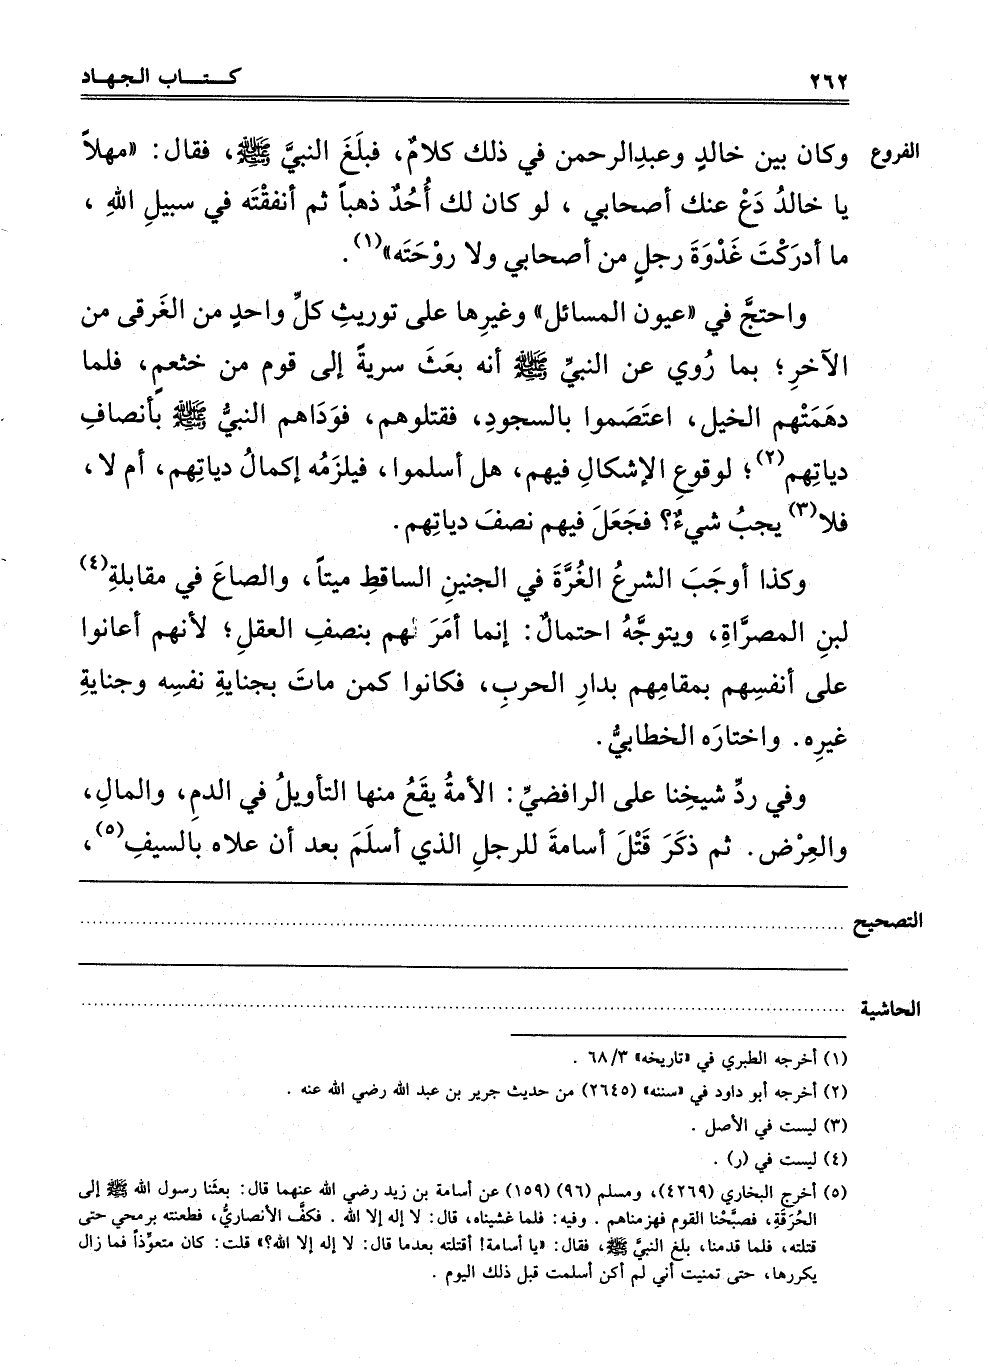 ٢٦٢ كـتـاب الـجهـاد
الفروع وكان بين خالدٍ وعبدِالرحمن في ذلك كلامٌ، فبلَغَ النبيَّ ﷺ، فقال: «مهلاً
يا خالدُ دَعْ عنك أصحابي، لو كان لك أُحُدٌ ذهباً ثم أنفقْتَه في سبيلِ اللهِ،
ما أدرَكْتَ غَدْوَةَ رجلٍ من أصحابي ولا روْحَتَه»(١).
واحتجَّ في «عيون المسائل» وغيرِها على توريثِ كلِّ واحدٍ من الغَرقى من
الآخرِ؛ بما رُوي عن النبيِّ ﷺ أنه بعَثَ سريةً إلى قوم من خثعمٍ، فلما
دهَمَتْهم الخيل، اعتَصَموا بالسجودِ، فقتلوهم، فوَدَاهم النبيُّ ﷺ بأنصافِ
دياتِهم(٢)؛ لوقوعِ الإشكالِ فيهم، هل أسلموا، فيلزَمُه إكمالُ دياتِهم، أم لا،
فلا(٣) يجبُ شيءٌ؟ فجَعَلَ فيهم نصفَ دياتِهم.
وكذا أوجَبَ الشرعُ الغُرَّةَ في الجنينِ الساقطِ ميتاً، والصاعَ في مقابلةِ(٤)
لبنِ المصرَّاةِ، ويتوجَّهُ احتمالٌ: إنما أمَرَ لهم بنصفِ العقلِ؛ لأنهم أعانوا
على أنفسِهم بمقامِهم بدارِ الحربِ، فكانوا كمن ماتَ بجنايةِ نفسِه وجنايةِ
غيرِه. واختارَه الخطابيُّ.
وفي ردِّ شيخِنا على الرافضيِّ: الأمةُ يقَعُ منها التأويلُ في الدمِ، والمالِ،
والعِرْض. ثم ذكَرَ قَتْلَ أسامةَ للرجلِ الذي أسلَمَ بعد أن علاه بالسيفِ(٥)،
التصحيح
الحاشية
(١) أخرجه الطبري في «تاريخه» ٦٨/٣.
(٢) أخرجه أبو داود في «سننه» (٢٦٤٥) من حديث جرير بن عبد الله رضي الله عنه.
(٣) ليست في الأصل.
(٤) ليست في (ر).
(٥) أخرج البخاري (٤٢٦٩)، ومسلم (٩٦) (١٥٩) عن أسامة بن زيد رضي الله عنهما قال: بعثَنا رسول الله ﷺ إلى
الحُرَقَةِ، فصبَّحْنا القوم فهزمناهم. وفيه: فلما غشيناه، قال: لا إله إلا الله. فكفَّ الأنصاريُّ، فطعنته برمحي حتى
قتلته، فلما قدمنا، بلغ النبيَّ ﷺ، فقال: «يا أسامة! أقتلته بعدما قال: لا إله إلا الله؟» قلت: كان متعوِّذاً فما زال
يكررها، حتى تمنيت أني لم أكن أسلمت قبل ذلك اليوم.